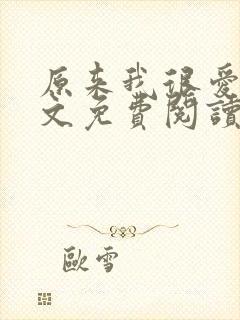 原来我很爱
文免費閱讀
歐雪